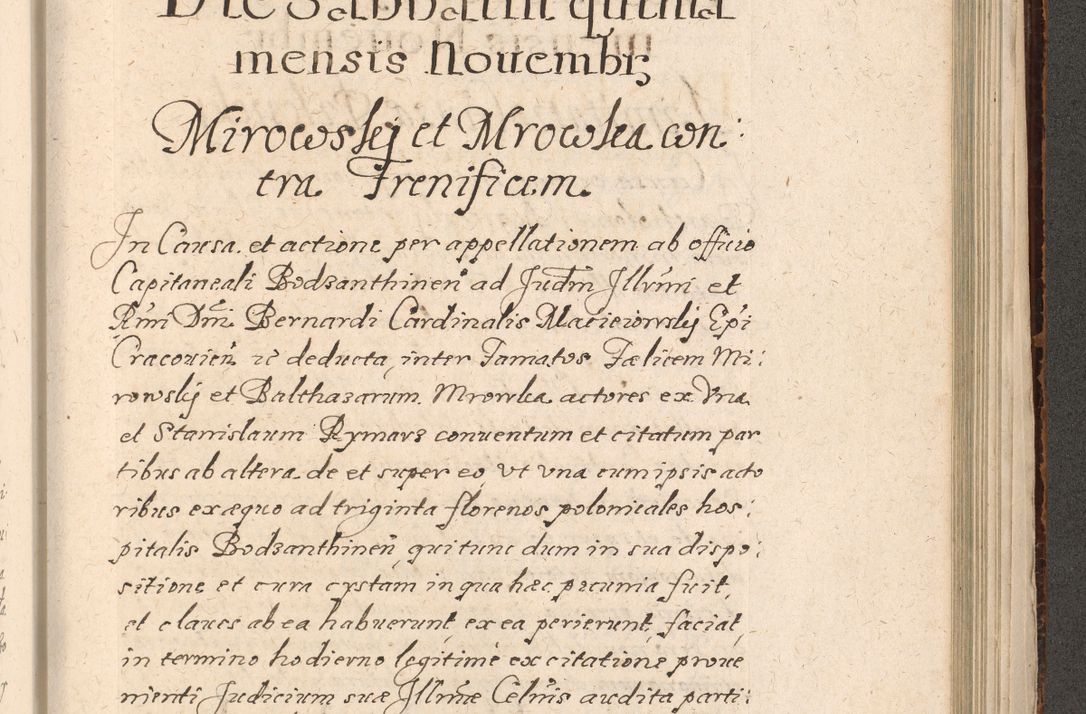 Die Sabbathi quinta
mensis Nouembrꝫ
Mirowskj et Mrowka con:
tra Frenificem.
In Causa et actione per appellationem ab officio
Capitaneali Bodzanthinen̄ ad Judm̄ Illrmi et
Rmi Dni Bernardi Cardinalis Macieiowskj Epi
Cracouień rc deducta, inter Famatos Fælicem Mi:
rowskj et Balthazarum Mrowka actores ex Vna
et Stanislaum Rymarz conuentum et citatum par
tibus ab altera de et super eo, vt vna cum ipsis acto
ribus ex æquo ad triginta florenos polonicales hos:
pitalis Bodzanthinen̄, qui tunc dum in sua dispo:
sitione et cura cystam, in qua hæc pecunia fuit,
et claues ab ea habuerunt, ex ea perierunt, faciat,
in termino hodierno legitime ex citatione proue
nienti Judicium suæ Illrmæ Celnis audita parti: